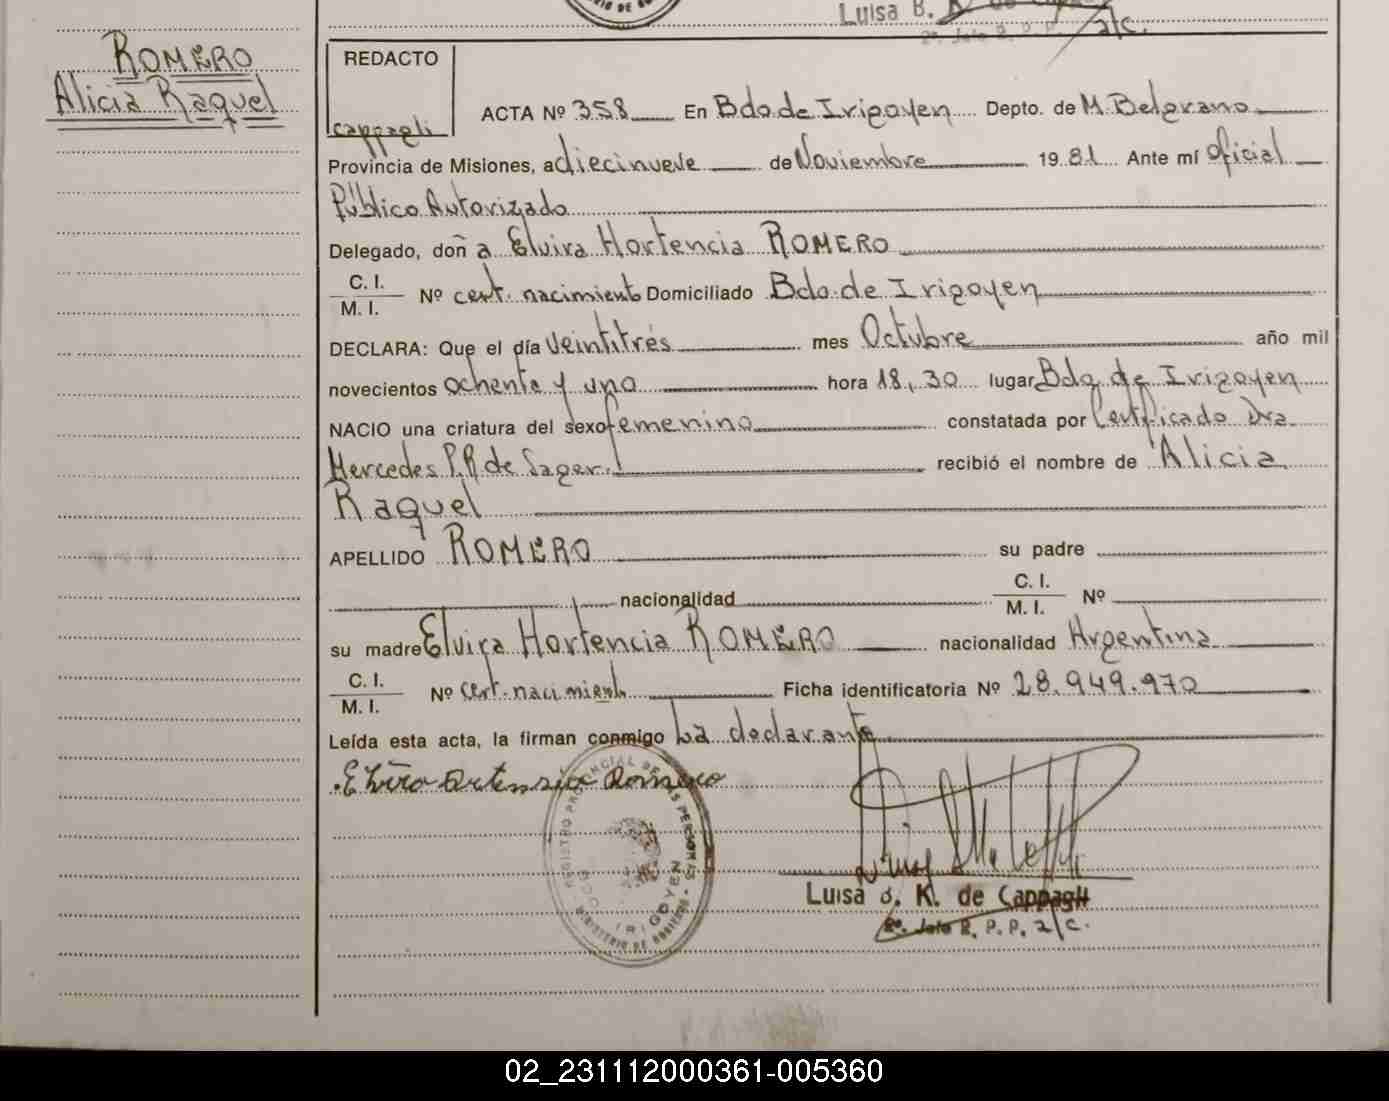 Luisa B. K. de
2º. Jefe R. P. P. a/c.
ROMERO
Alicia Raquel
REDACTO
Cappagli
ACTA Nº 358 En Bdo. de Irigoyen Depto. de M. Belgrano
Provincia de Misiones, a diecinueve de Noviembre 1981 Ante mí Oficial
Público Autorizado
Delegado, doña Elvira Hortencia ROMERO
C. I.
M. I. Nº cert. nacimiento Domiciliado Bdo. de Irigoyen
DECLARA: Que el día veintitrés mes Octubre año mil
novecientos ochenta y uno hora 18,30 lugar Bdo. de Irigoyen
NACIO una criatura del sexo femenino constatada por Certificado Dra.
Mercedes P. R. de Sager recibió el nombre de Alicia
Raquel
APELLIDO ROMERO su padre
nacionalidad C. I.
M. I. Nº
su madre Elvira Hortencia ROMERO nacionalidad Argentina
C. I.
M. I. Nº cert. nacimiento Ficha identificatoria Nº 28.949.970
Leída esta acta, la firman conmigo La declarante
Elviro Ortensia Romero
REGISTRO PROVINCIAL DE LAS PERSONAS
IRIGOYEN
MINISTERIO DE GOBIERNO
Luisa B. K. de Cappagli
2º. Jefe R. P. P. a/c.
02_231112000361-005360